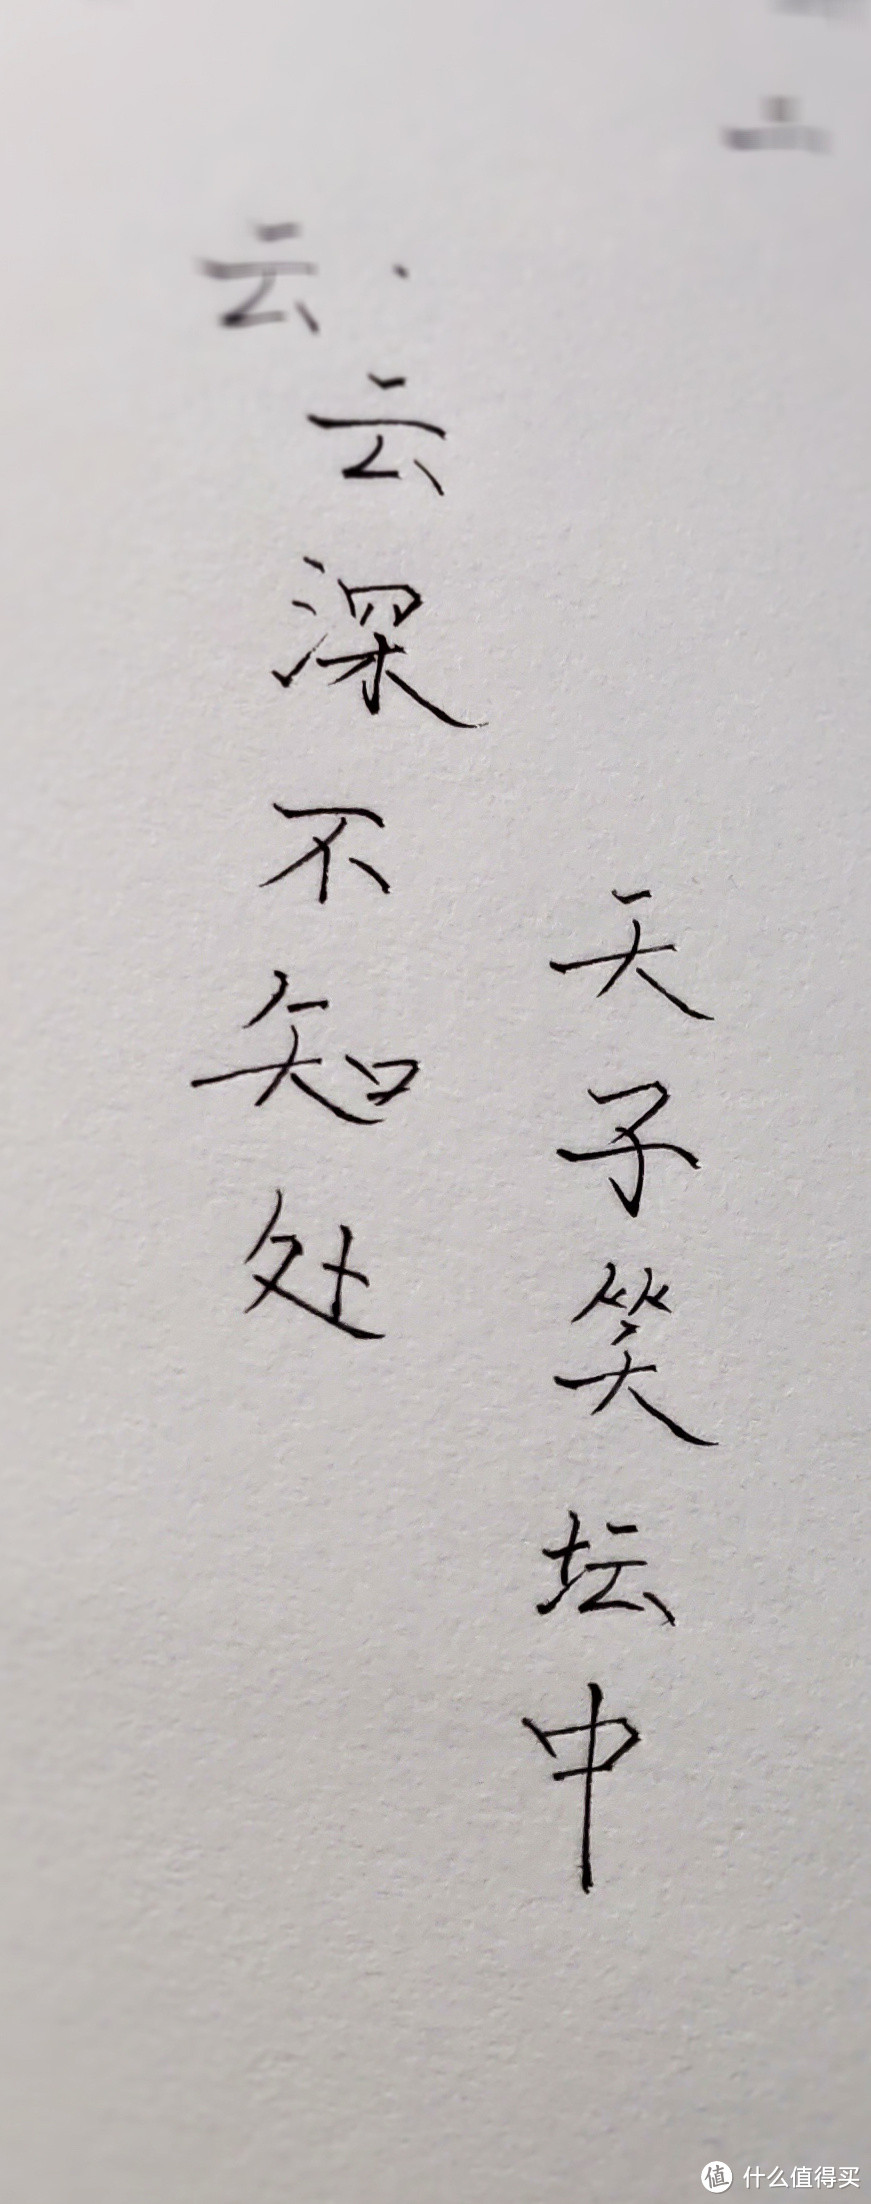 天子笑坛中
云深不知处
云
值 什么值得买